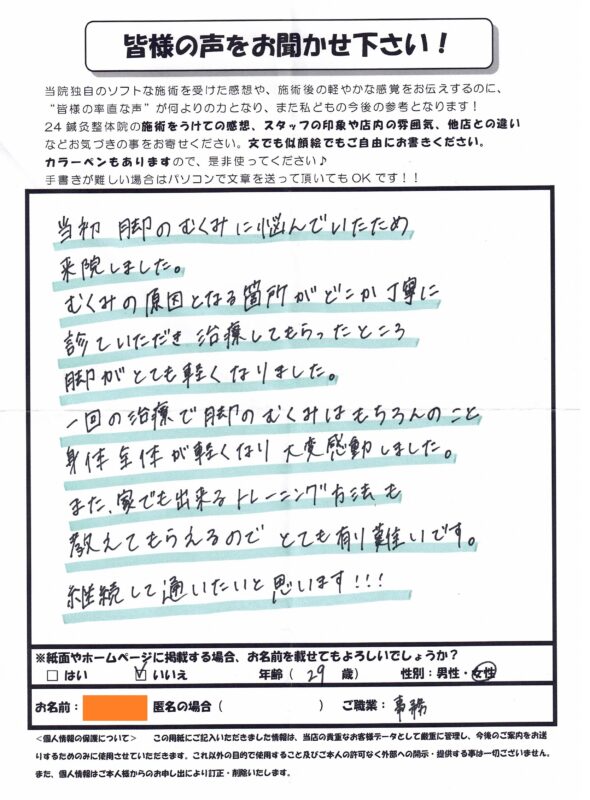 皆様の声をお聞かせ下さい！
当院独自のソフトな施術を受けた感想や、施術後の軽やかな感覚をお伝えするのに、
“皆様の率直な声”が何よりの力となり、また私どもの今後の参考となります！
24鍼灸整体院の施術をうけての感想、スタッフの印象や店内の雰囲気、他店との違い
などお気づきの事をお寄せください。文でも似顔絵でもご自由にお書きください。
カラーペンもありますので、是非使ってください♪
手書きが難しい場合はパソコンで文章を送って頂いてもOKです！！
当初 脚のむくみに悩んでいたため
来院しました。
むくみの原因となる箇所がどこか丁寧に
診ていただき 治療してもらったところ
脚がとても軽くなりました。
一回の治療で脚のむくみはもちろんのこと
身体全体が軽くなり 大変感動しました。
また、家でも出来るトレーニング方法も
教えてもらえるので とても有り難いです。
継続して通いたいと思います!!!
※紙面やホームページに掲載する場合、お名前を載せてもよろしいでしょうか？
□はい ☑いいえ 年齢（ 29 歳） 性別：男性・女性
お名前： 匿名の場合（ ） ご職業： 事務
＜個人情報の保護について＞ この用紙にご記入いただきました情報は、当店の貴重なお客様データとして厳重に管理し、今後のご案内をお送
りするためのみに使用させていただきます。これ以外の目的で使用すること及びご本人の許可なく外部への開示・提供する事は一切ございません。
また、個人情報はご本人様からのお申し出により訂正・削除いたします。